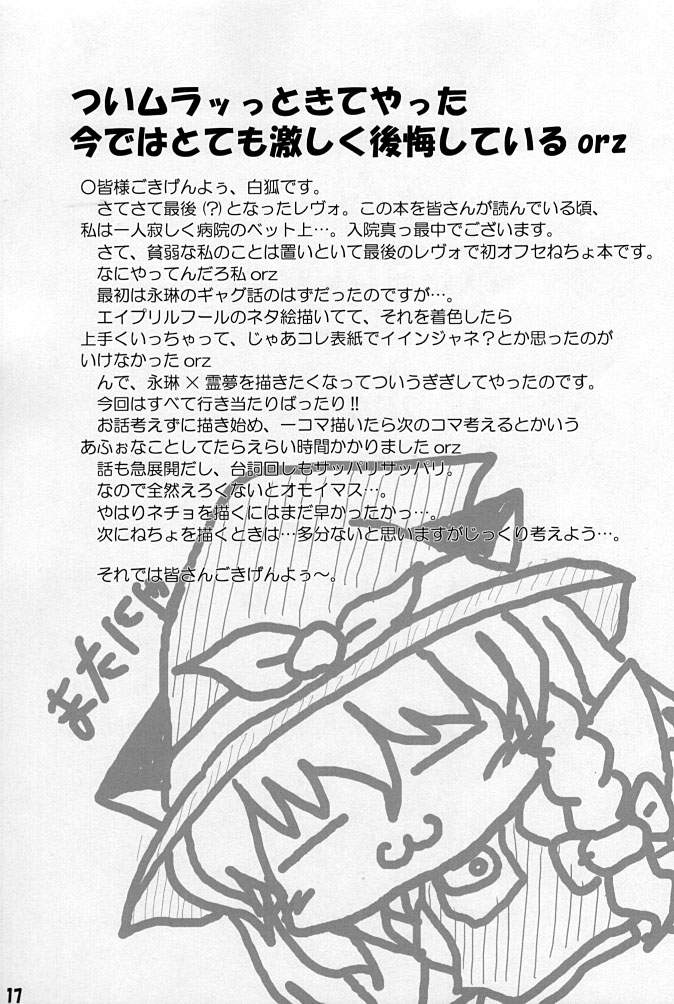 ついムラッっときてやった
今ではとても激しく後悔しているorz
○皆様ごきげんよぅ、白狐です。
さてさて最後(?)となったレヴォ。この本を皆さんが読んでいる頃、
私は一人寂しく病院のベット上…。入院真っ最中でございます。
さて、貧弱な私のことは置いといて最後のレヴォで初オフセねちょ本です。
なにやってんだろ私orz
最初は永琳のギャグ話のはずだったのですが…。
エイプリルフールのネタ絵描いてて、それを着色したら
上手くいっちゃって、じゃあコレ表紙でイインジャネ？とか思ったのが
いけなかったorz
んで、永琳×霊夢を描きたくなってついうぎぎしてやったのです。
今回はすべて行き当たりばったり!!
お話考えずに描き始め、一コマ描いたら次のコマ考えるとかいう
あふぉなことしてたらえらい時間かかりましたorz
話も急展開だし、台詞回しもサッパリサッパリ。
なので全然えろくないとオモイマス…。
やはりネチョを描くにはまだ早かったかっ…。
次にねちょを描くときは…多分ないと思いますがじっくり考えよう…。
それでは皆さんごきげんよぅ～。
またにゃ
17